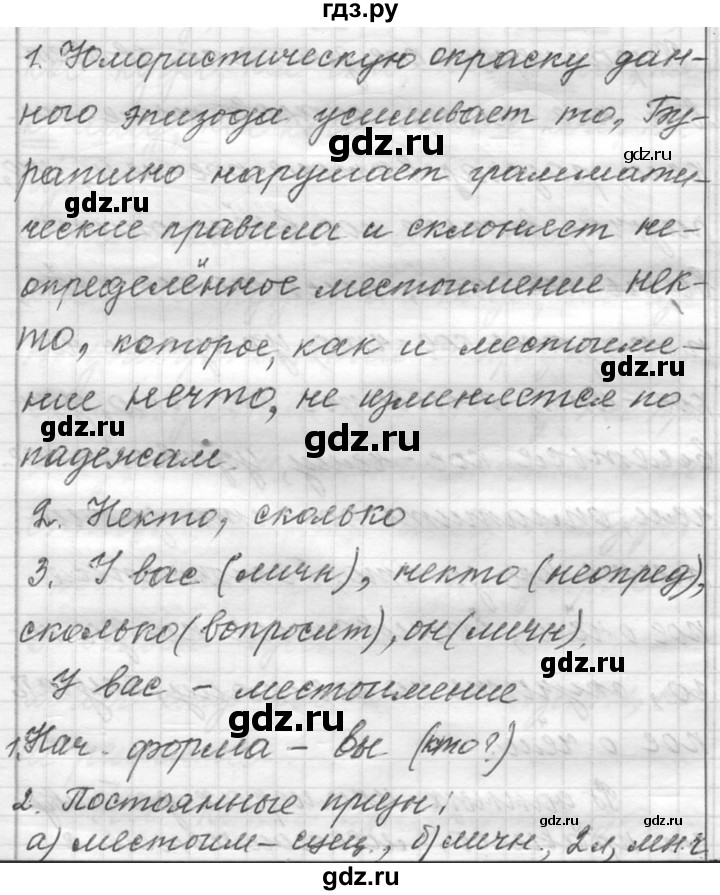 гдз.ру
1. Юмористическую окраску дан-
ного эпизода усиливает то, Бу-
gdz.ru
gdz.ru
ратино нарушает граммати-
gdz.ru
ческие правила и склоняет не-
определённое местоимение нек-
то, которое, как и местоиме-
gdz.ru
ние нечто, не изменяется по
gdz.ru
gdz.ru
падежам.
2. Некто, сколько
3. У вас (личн), некто (неопред),
сколько (вопросит), он (личн).
gdz.ru
У вас – местоимение
gdz.ru
1. Нач. форма – вы (кто?)
2. Постоянные призн:
gdz.ru
gdz.ru
а) местоим – сущ., б) личн., 2л, мн.ч.